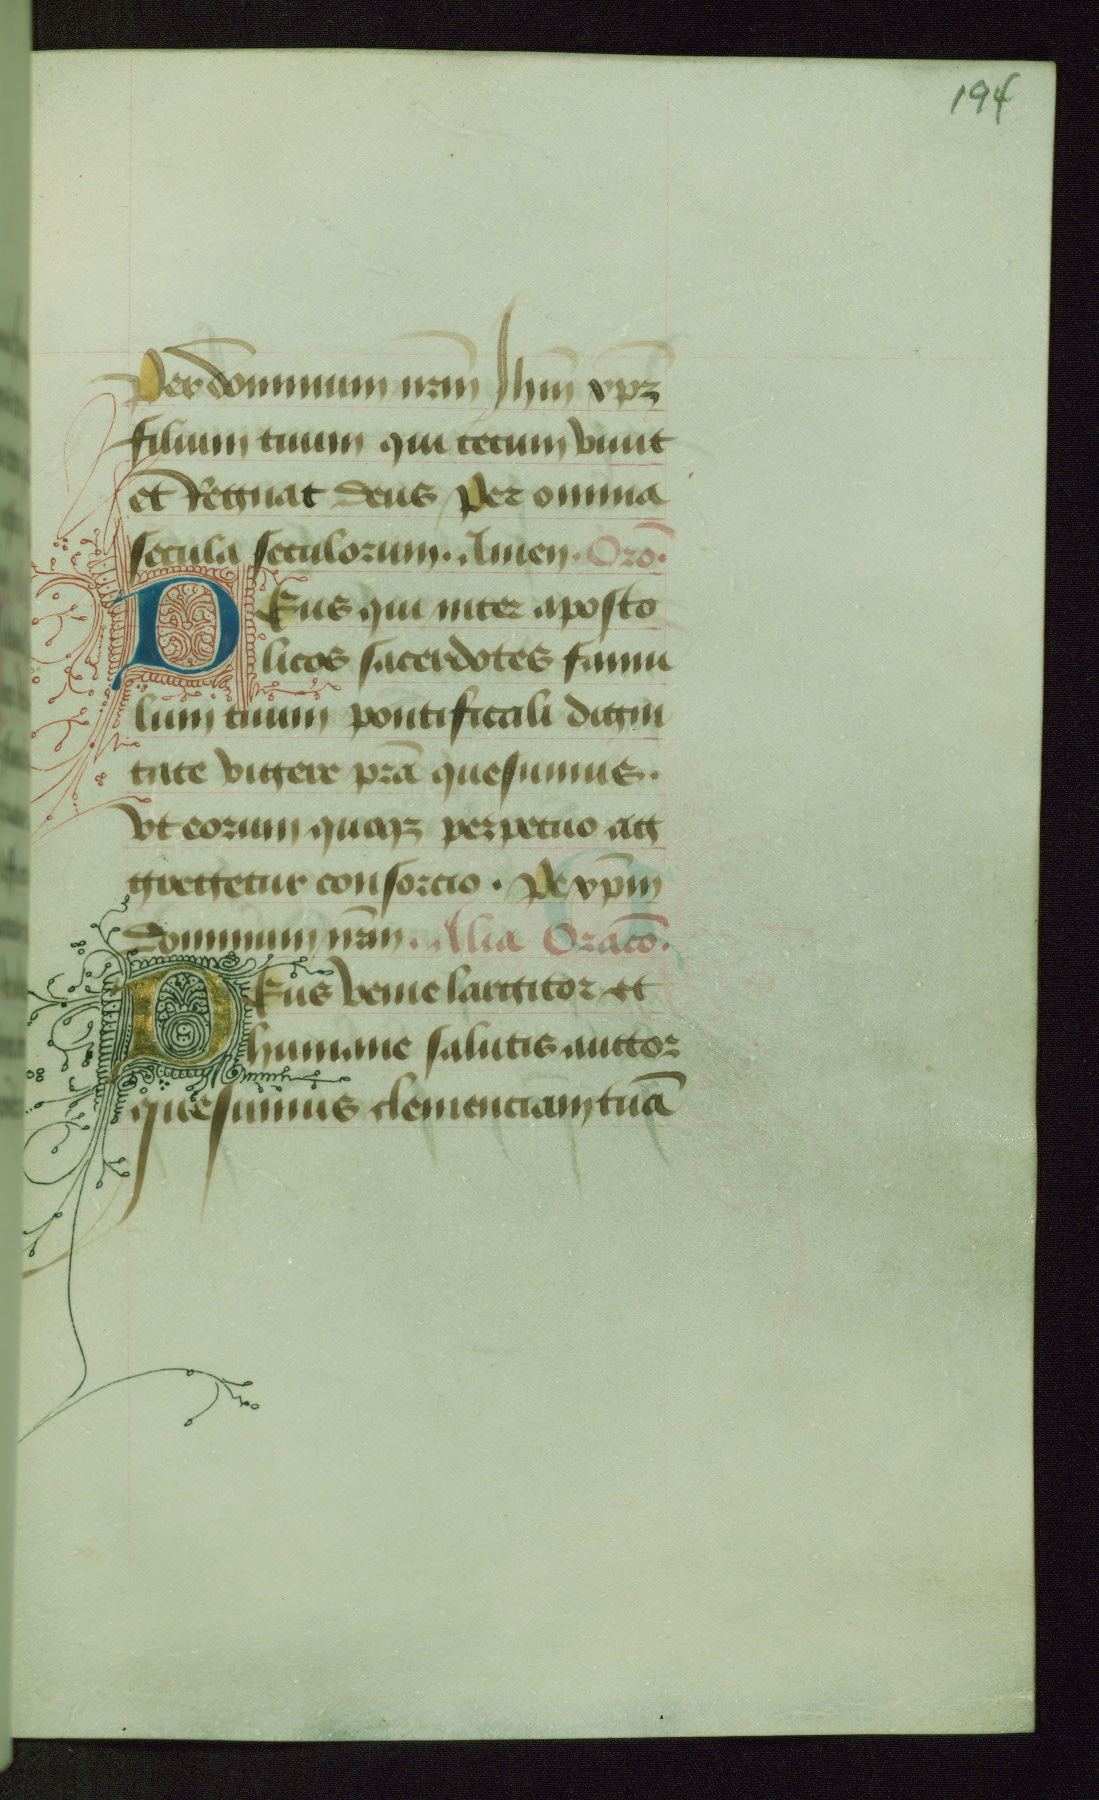 194
Per dominum nr̄m Jhm̄ xp̄z
filium tuum qui tecum viuit
et Regnat deus Per omnia
secula seculorum. Amen. Oro.
DEus qui inter aposto
licos sacerdotes famu
lum tuum pontificali digni
tate vigere p̄rā quesumus.
vt eorum quoqz perpetuo ag
gregetur consorcio. Pe xp̄m
dominum nr̄m. Alia Oracō.
DEus venie largitor et
humane salutis auctor
quesumus clemenciam tuā